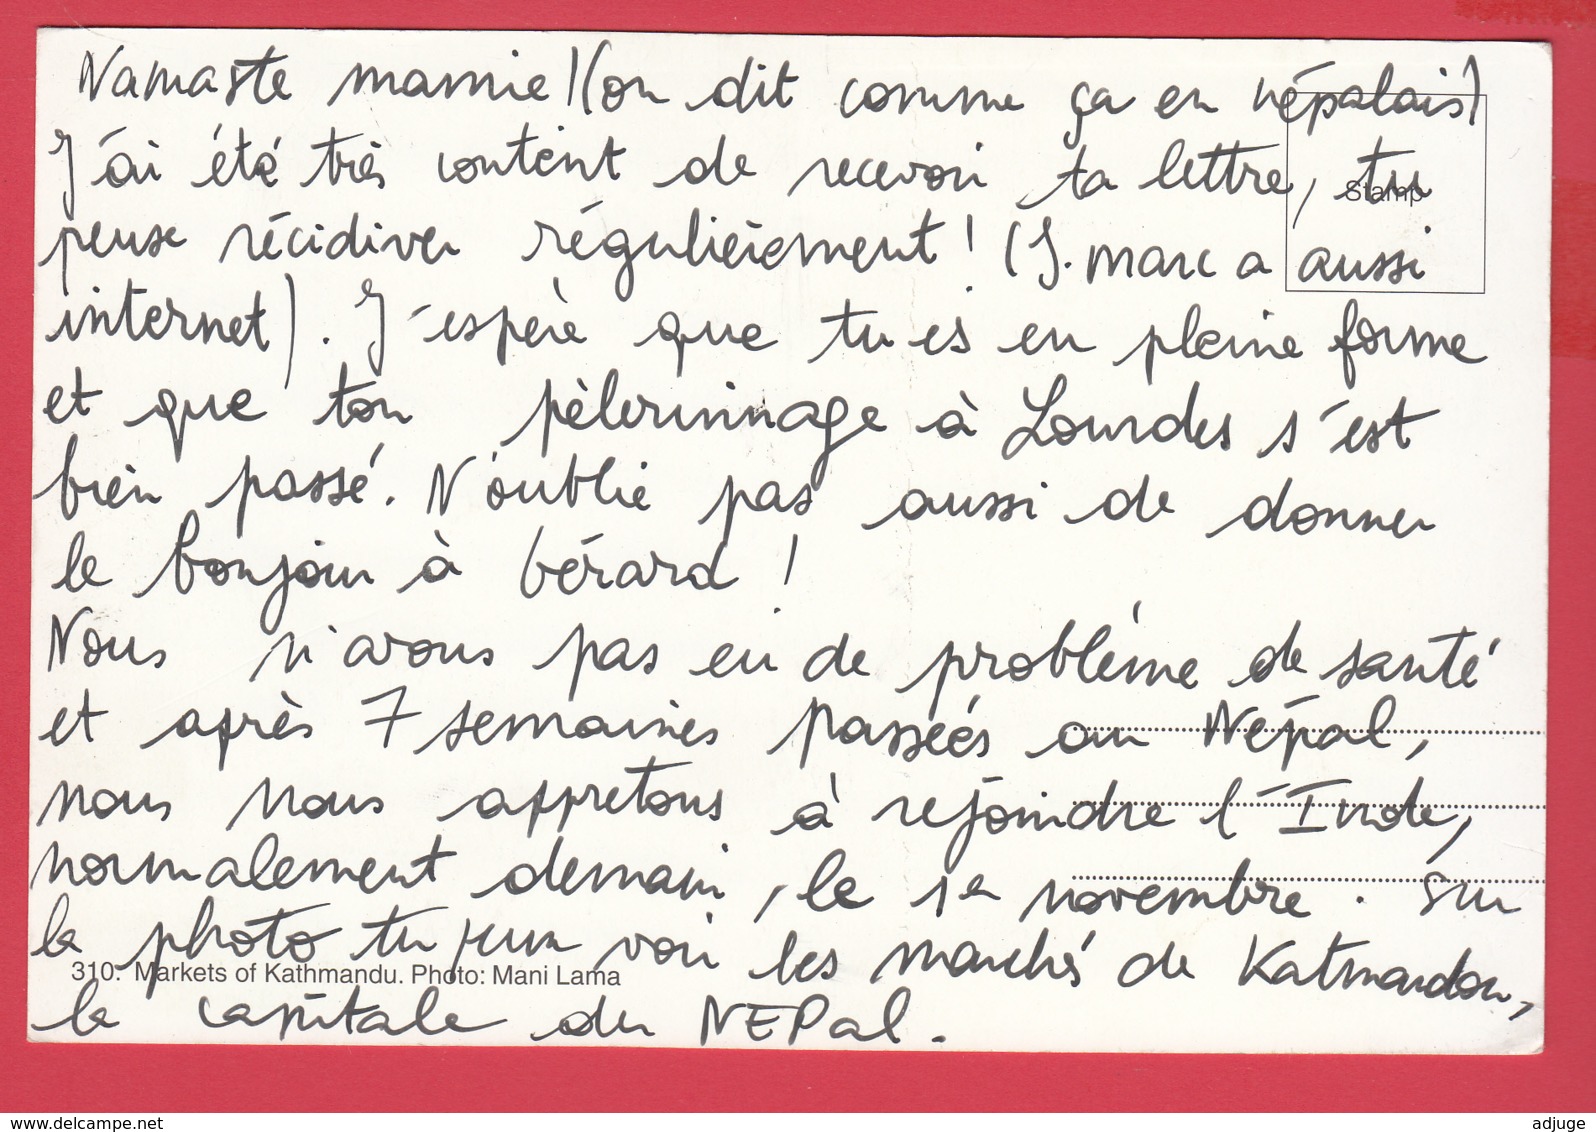 Namaste mamie ! (on dit comme ça en népalais)
J'ai été très content de recevoir ta lettre, tu
Stamp
peux récidiver régulièrement ! (J. Marc a aussi
internet). J'espère que tu es en pleine forme
et que ton pèlerinnage à Lourdes s'est
bien passé. N'oublie pas aussi de donner
le bonjour à Gérard !
Nous n'avons pas eu de problème de santé
et après 7 semaines passées au Népal,
nous nous appretons à rejoindre l'Inde,
normalement demain, le 1er novembre. Sur
la photo tu peux voir les marchés de Katmandou,
310. Markets of Kathmandu. Photo: Mani Lama
la capitale du NEPal.
www.delcampe.net
adjuge